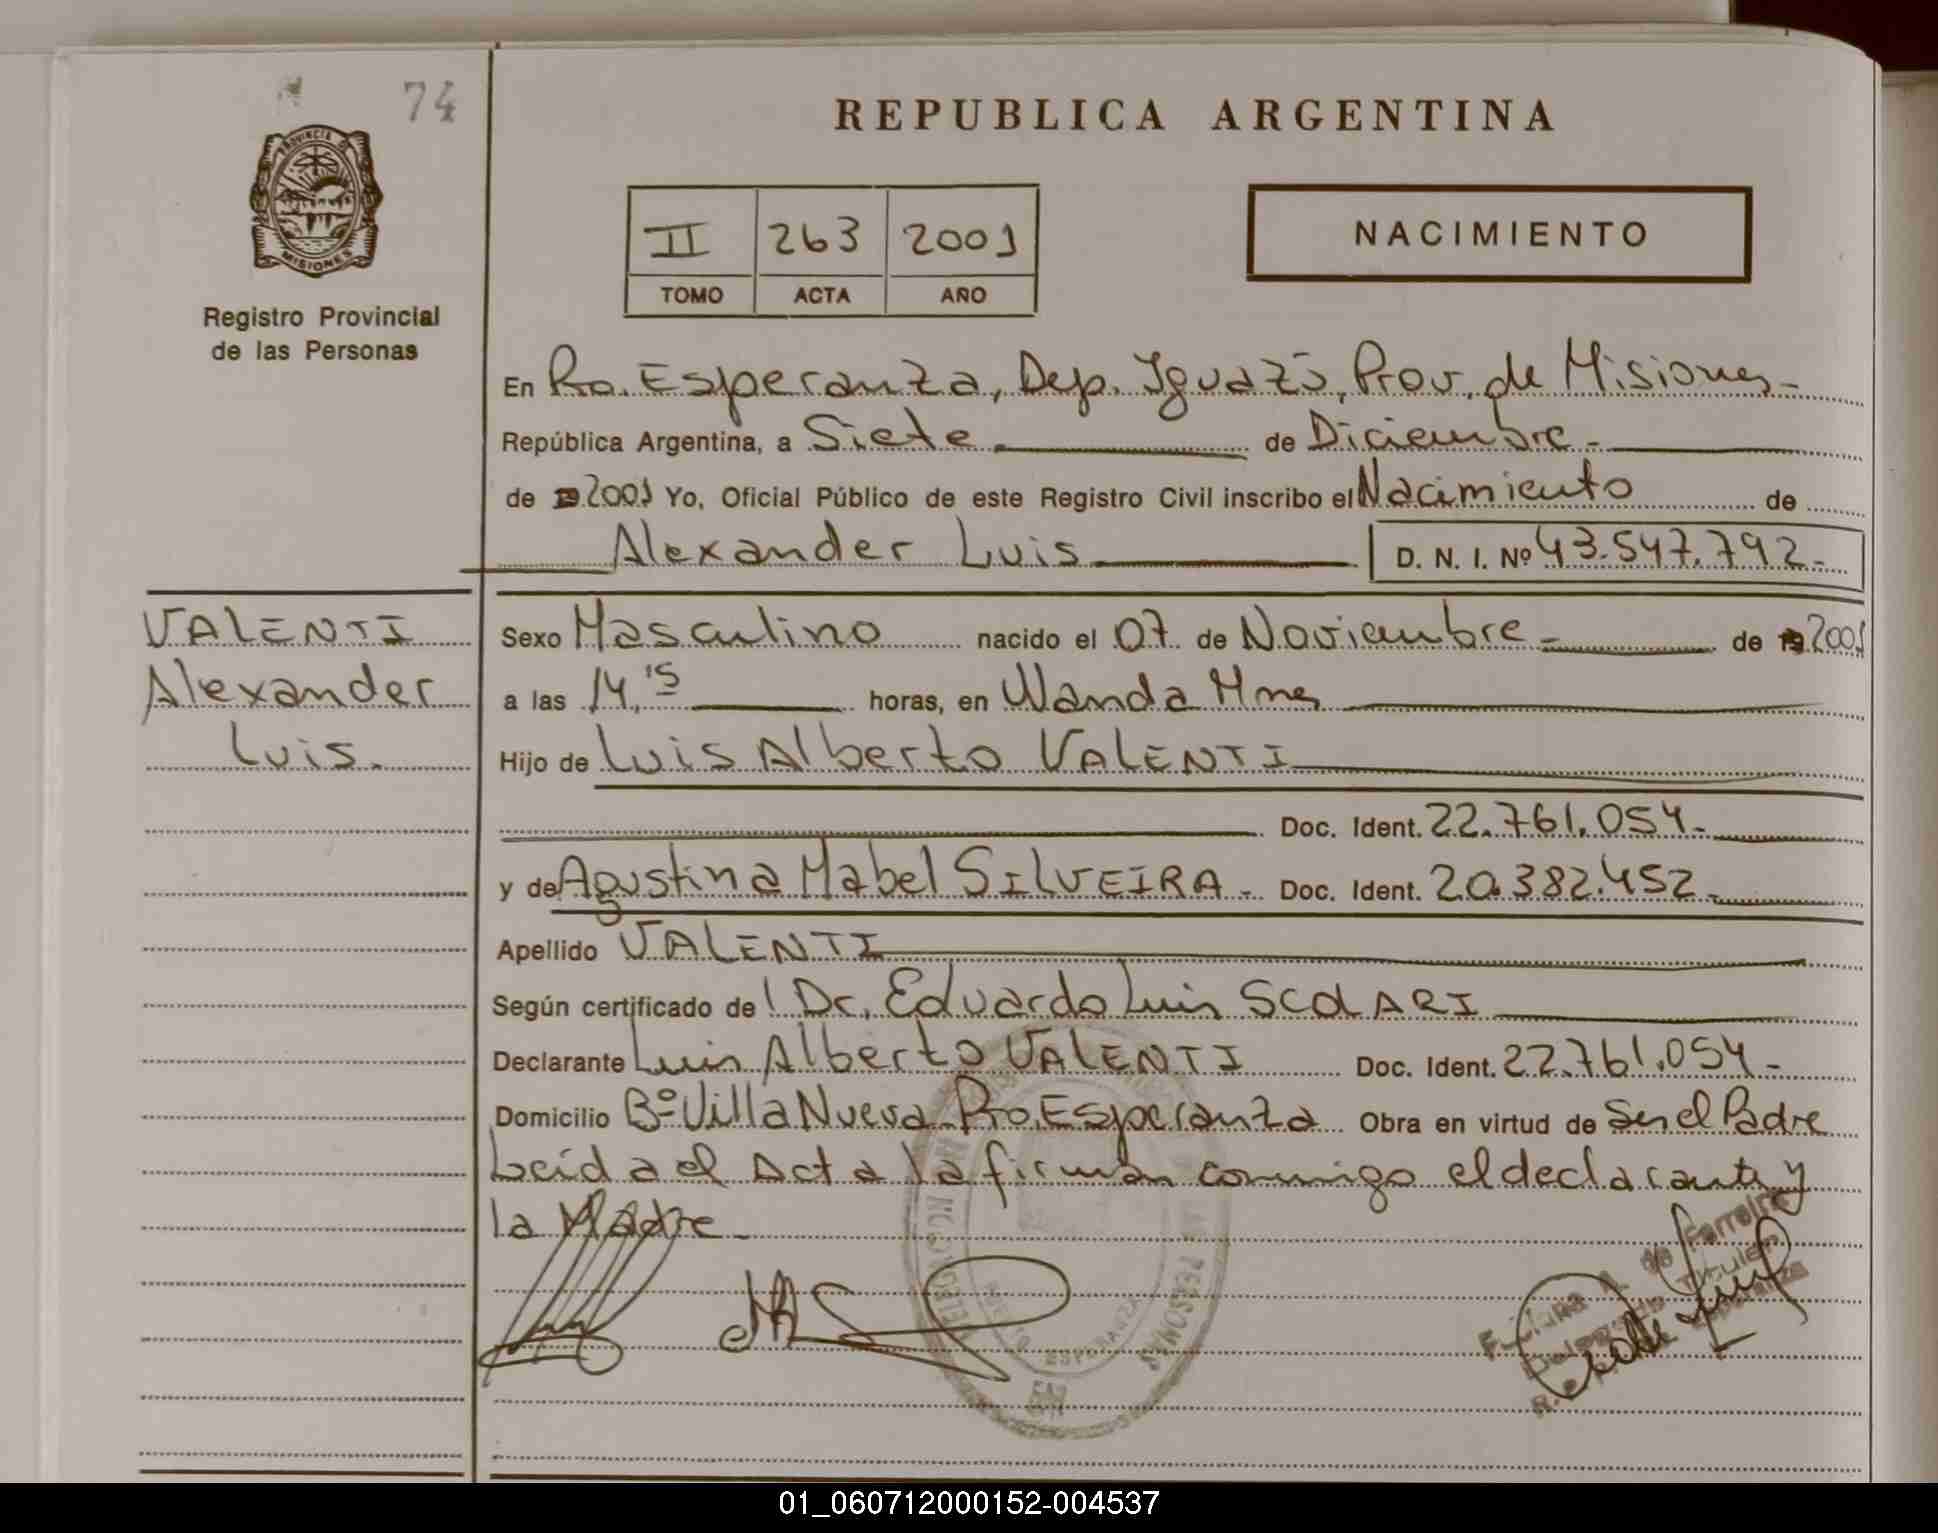 74
REPUBLICA ARGENTINA
PROVINCIA DE
MISIONES
Registro Provincial
de las Personas
II 263 2001
TOMO ACTA AÑO
NACIMIENTO
En Pto. Esperanza, Dep. Iguazú, Prov. de Misiones-
República Argentina, a Siete de Diciembre-
de 2001 Yo, Oficial Público de este Registro Civil inscribo el Nacimiento de
Alexander Luis D. N. I. Nº 43.547.792-
VALENTI
Alexander
Luis.
Sexo Masculino nacido el 07 de Noviembre- de 2001
a las 14,15 horas, en Wanda Mnes
Hijo de Luis Alberto VALENTI
Doc. Ident. 22.761.054-
y de Agustina Mabel SILVEIRA- Doc. Ident. 20.382.452-
Apellido VALENTI
Según certificado de Dr. Eduardo Luis SCOLARI
Declarante Luis Alberto VALENTI Doc. Ident. 22.761.054-
Domicilio Bº Villa Nueva Pto. Esperanza Obra en virtud de Ser el Padre
Leída el Acta la firman conmigo el declarante y
la Madre-
PERSONAS
ESPERANZA
de Ferreira
Titular
01_060712000152-004537